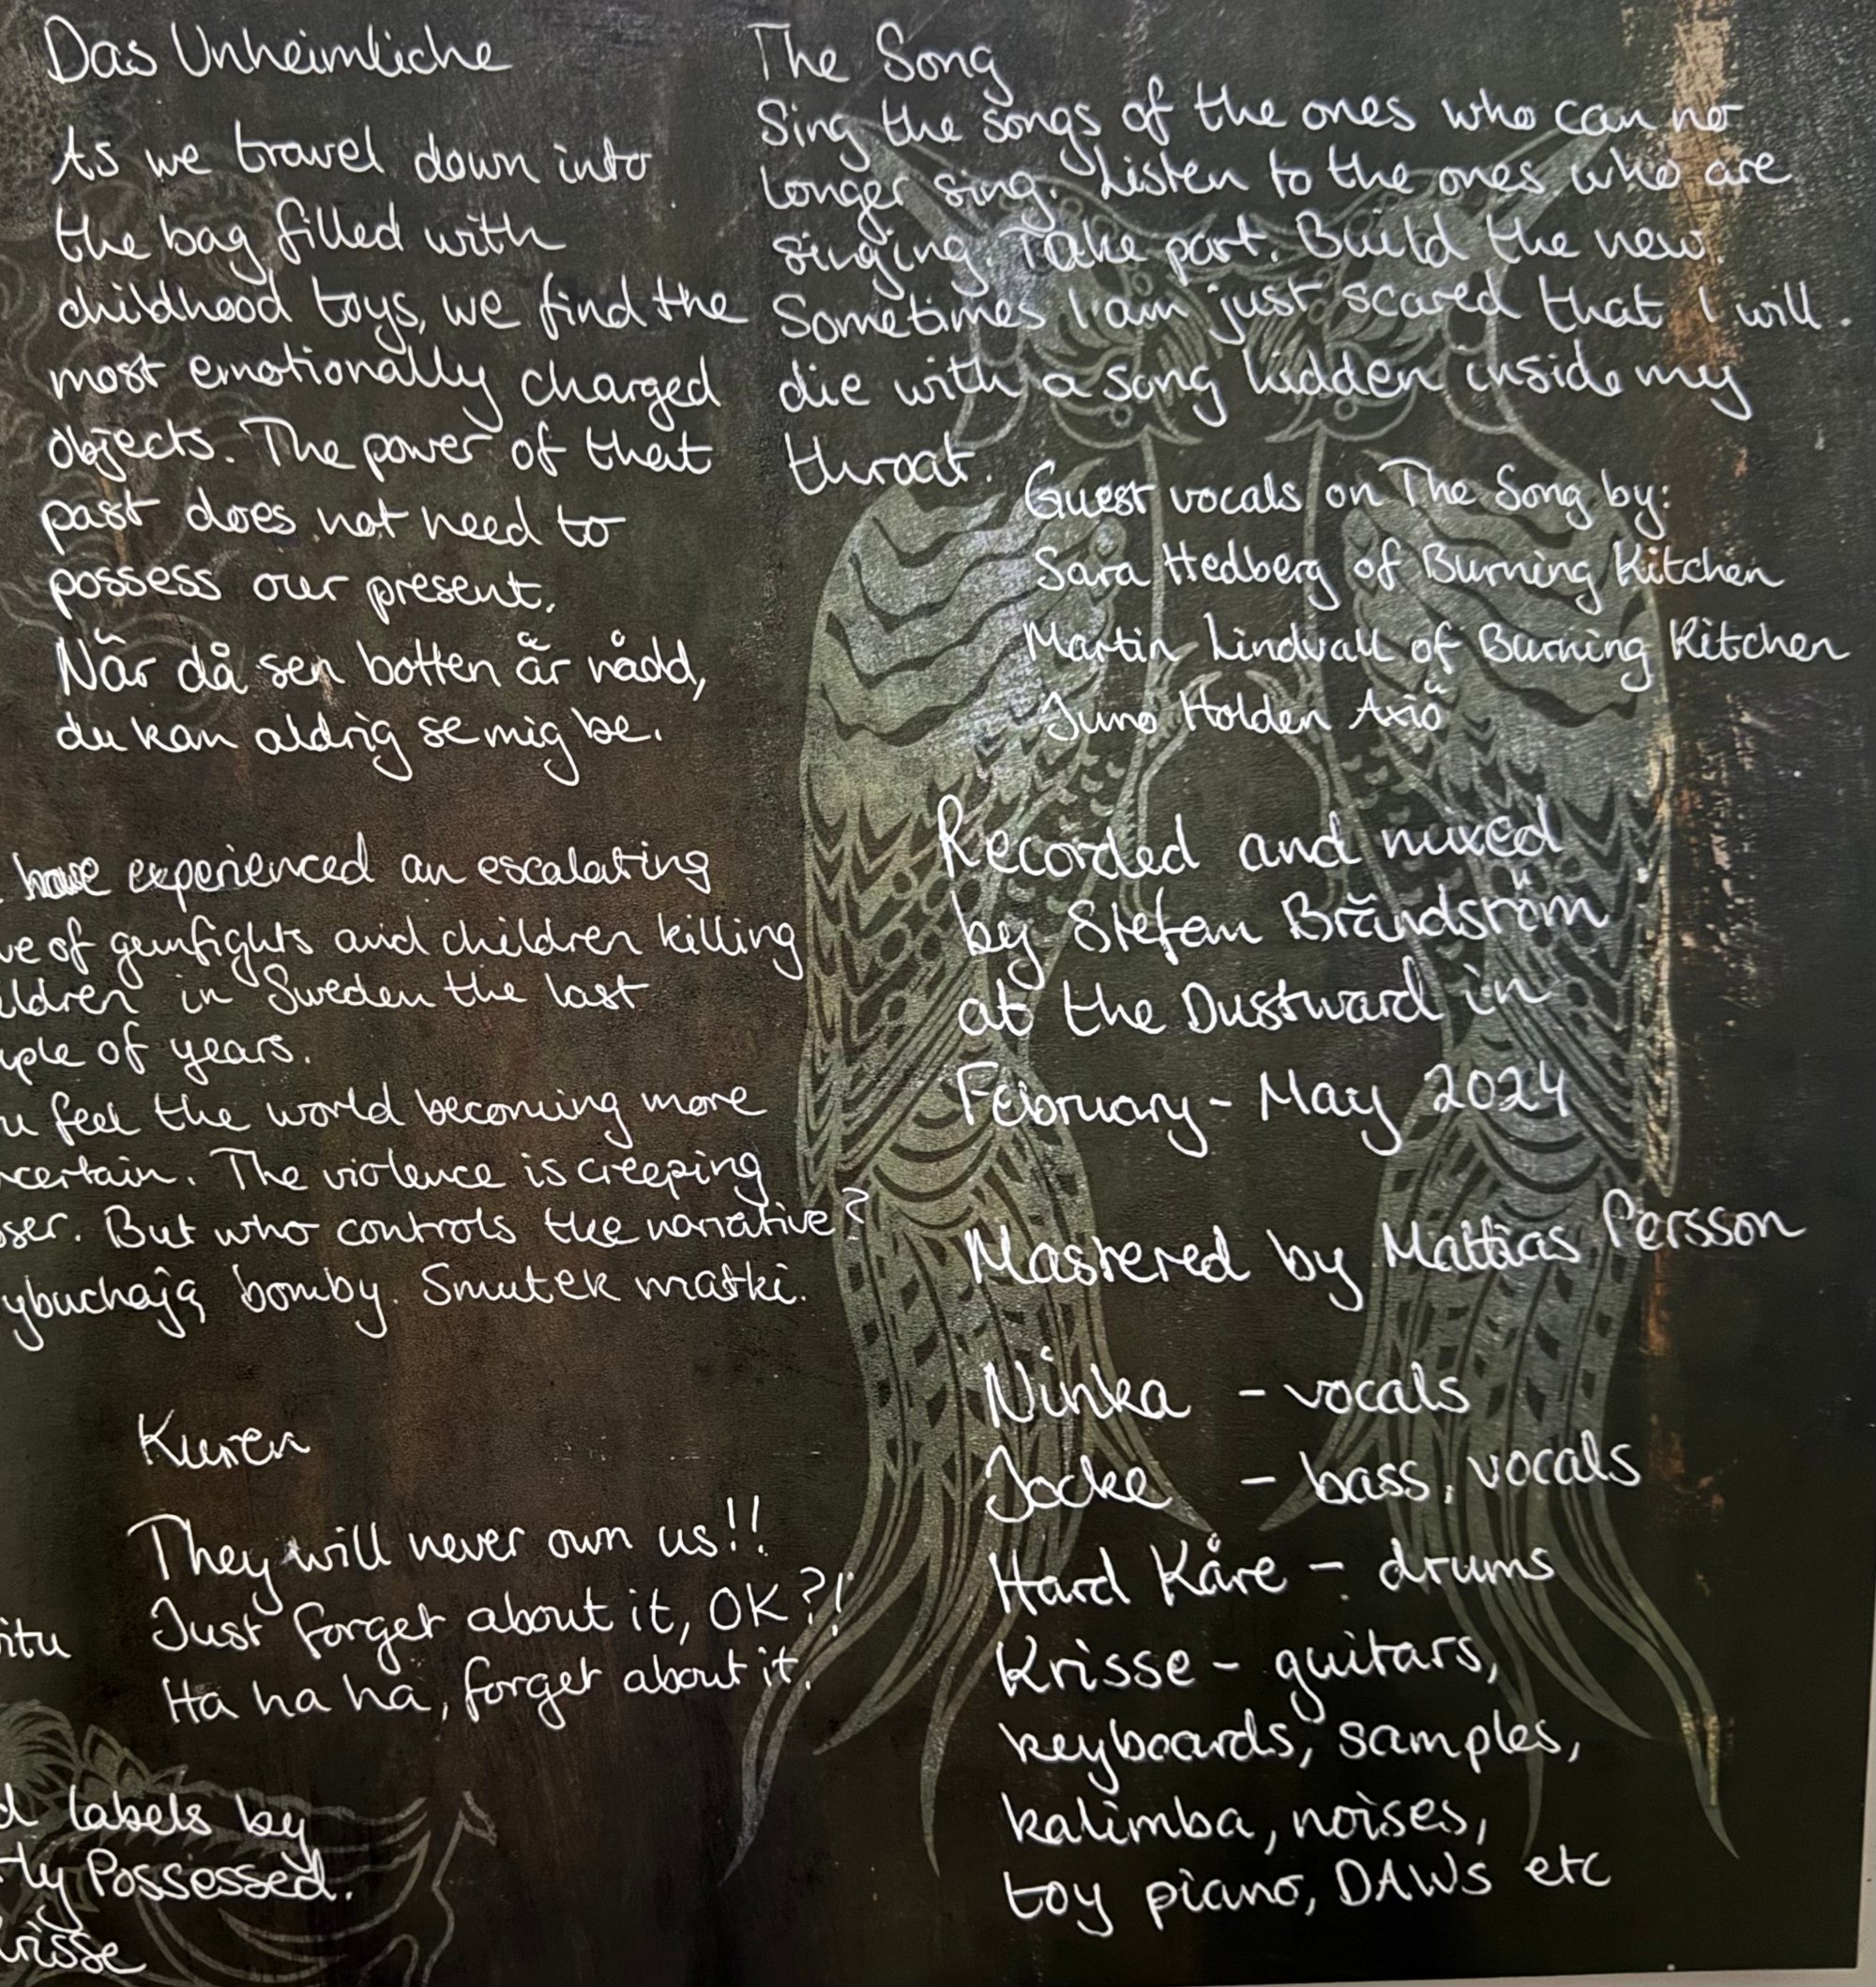 Das Unheimliche
As we travel down into
the bag filled with
childhood toys, we find the
most emotionally charged
objects. The power of that
past does not need to
possess our present.
När då sen botten är nådd,
du kan aldrig se mig be.
have experienced an escalating
ve of gunfights and children killing
ildren in Sweden the last
uple of years.
u feel the world becoming more
certain. The violence is creeping
ser. But who controls the narrative?
ybuchają bomby. Smutek matki.
Kuren
They will never own us!!
Just forget about it, OK?!
Ha ha ha, forget about it.
itu
d labels by
tly Possessed.
risse
The Song
Sing the songs of the ones who can no
longer sing. Listen to the ones who are
singing. Take part. Build the new.
Sometimes I am just scared that I will
die with a song hidden inside my
throat.
Guest vocals on The Song by:
Sara Hedberg of Burning Kitchen
Martin Lindvall of Burning Kitchen
Juno Holden Axiö
Recorded and mixed
by Stefan Brändström
at the Dustward in
February - May 2024
Mastered by Mattias Persson
Ninka - vocals
Jocke - bass, vocals
Hard Kåre - drums
Krisse - guitars,
keyboards, samples,
kalimba, noises,
toy piano, DAWs etc